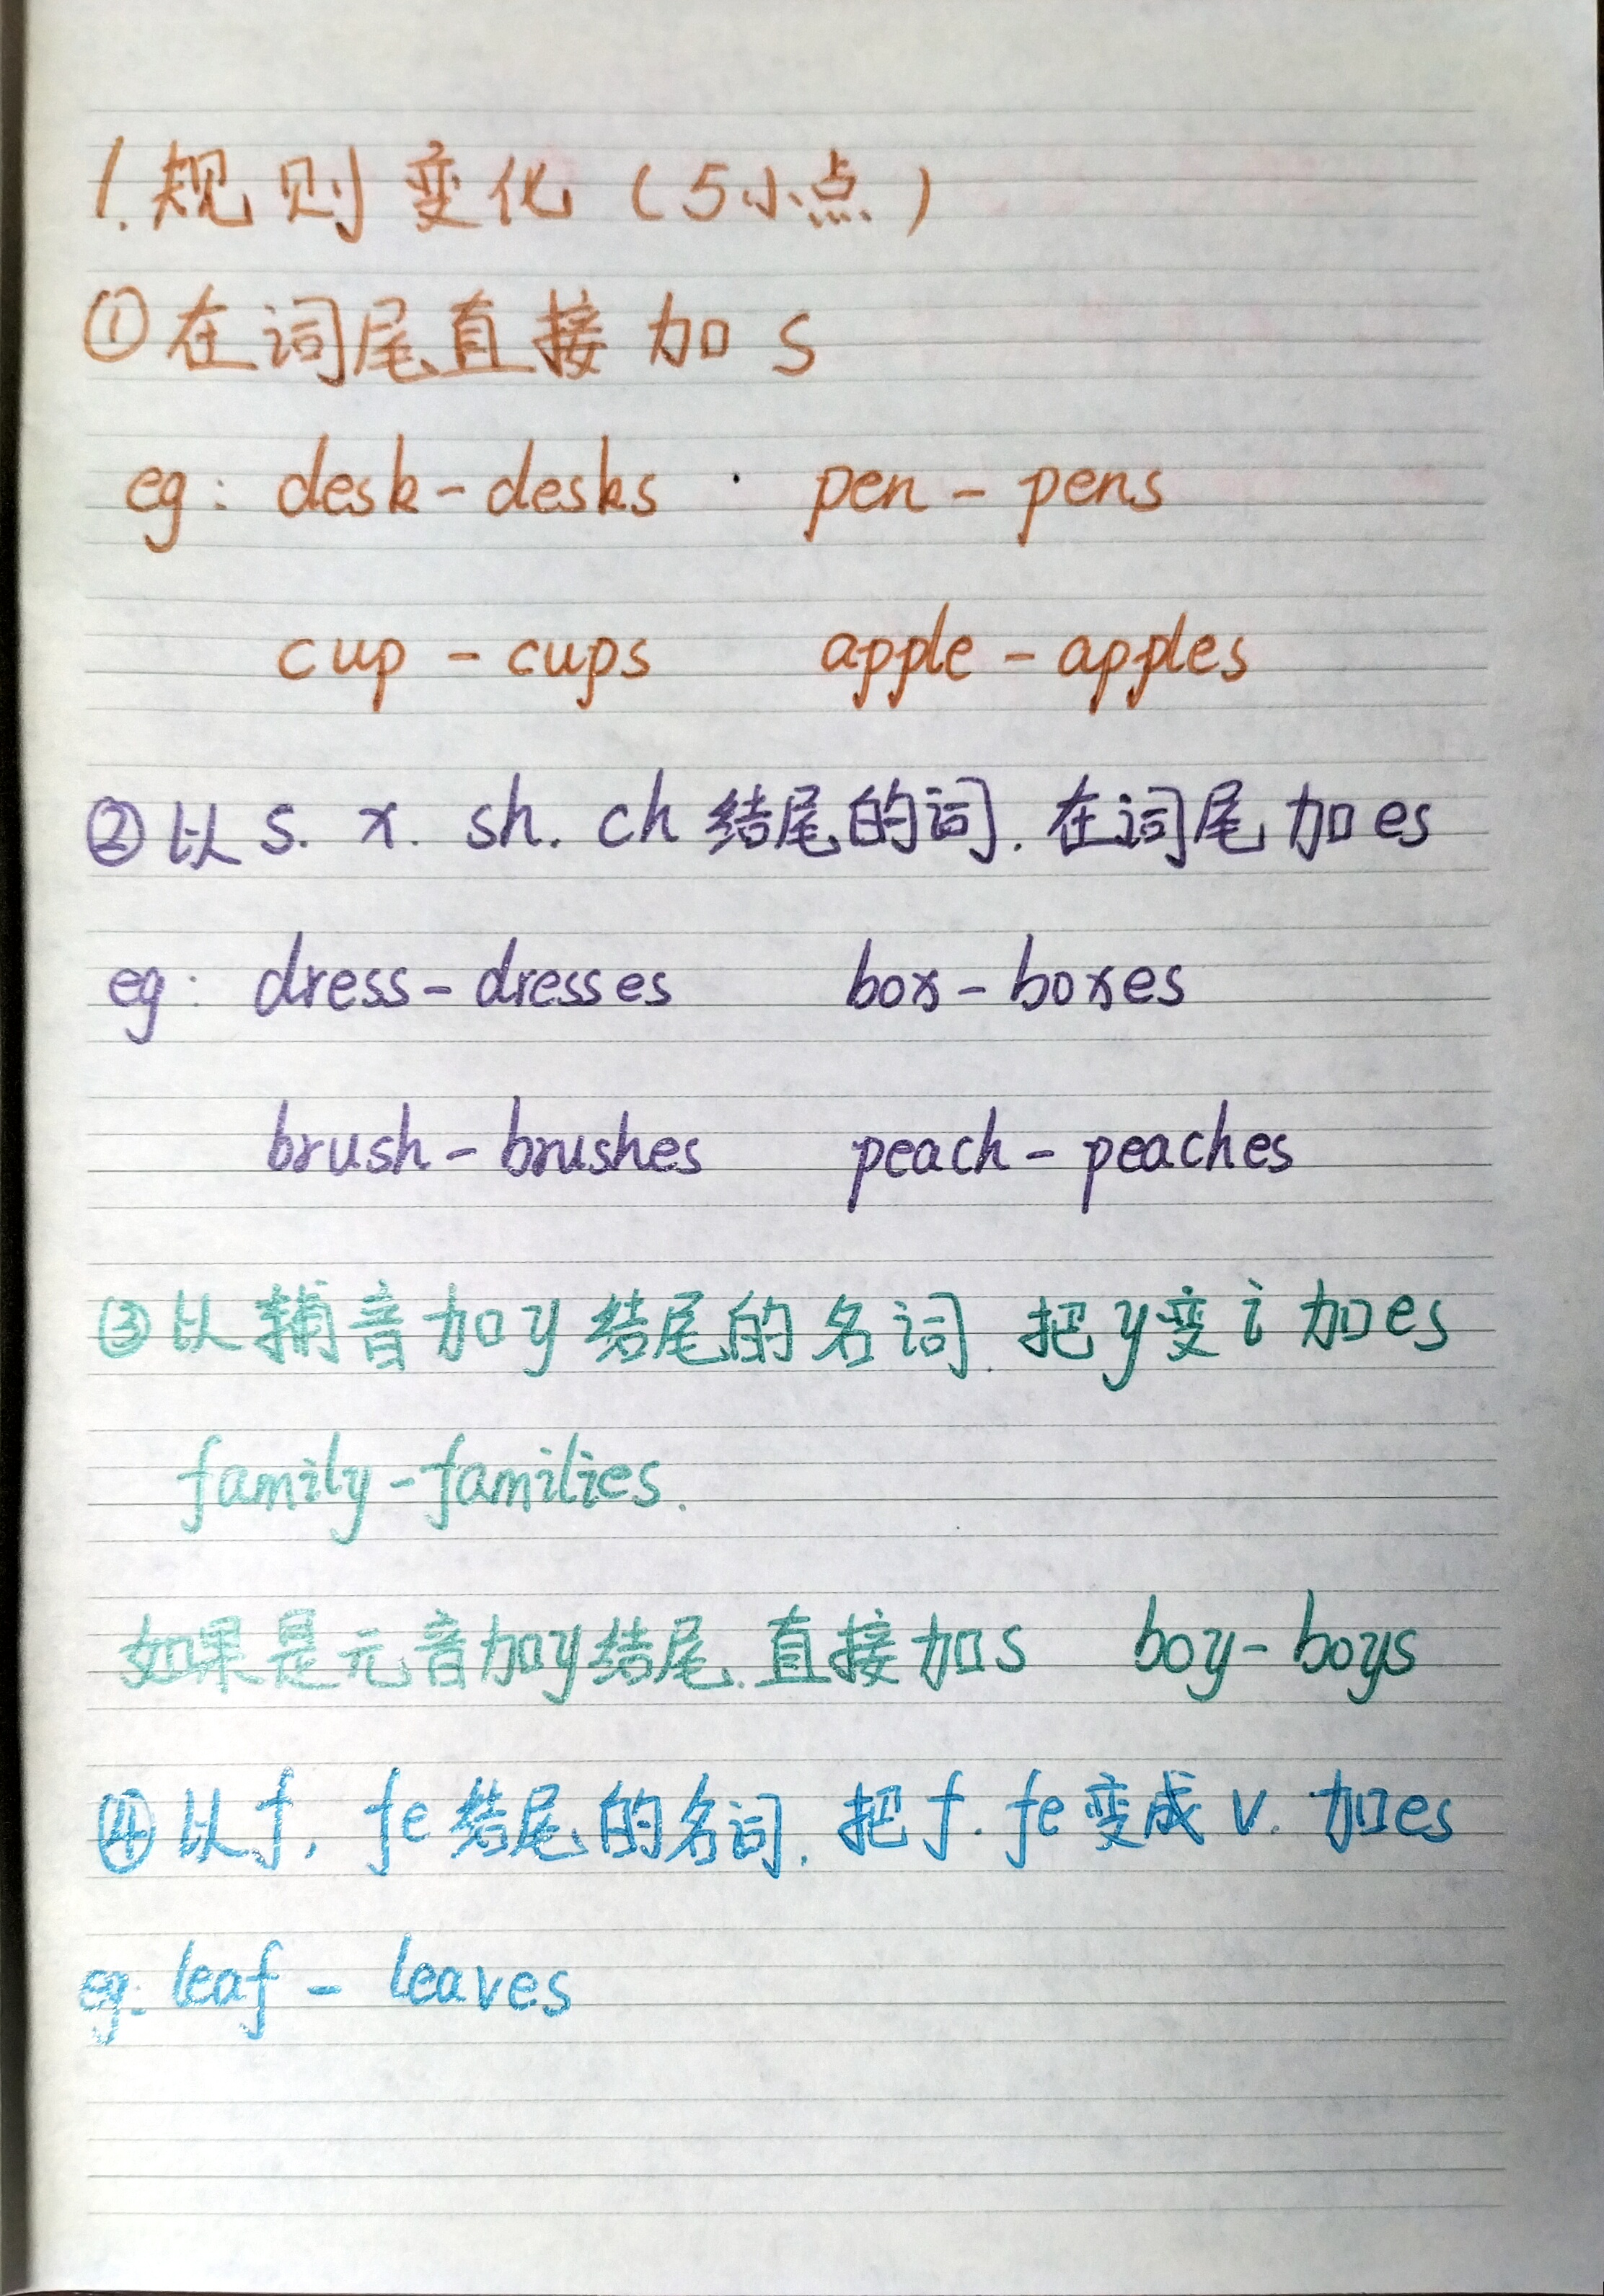 1. 规则变化（5小点）
①在词尾直接加s
eg: desk - desks · pen - pens
cup - cups apple - apples
②以s. x. sh. ch结尾的词. 在词尾加es
eg: dress - dresses box - boxes
brush - brushes peach - peaches
③以辅音加y结尾的名词. 把y变i加es
family - families.
如果是元音加y结尾. 直接加s boy - boys
④以f, fe结尾的名词. 把f. fe变成v. 加es
eg: leaf - leaves